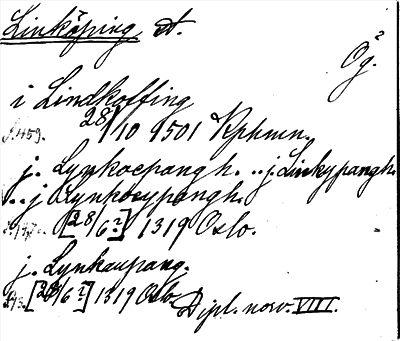 Linköping, st.
Ög.
i Lindkoffing
s. 459. 28/10 1501 Kphmn.
j. Lynkoepangh. .. j Linkypangh.
.. j Lynkoeypangh.
s. 147. [28/6?] 1319 Oslo.
j. Lynkaupang.
s. 145. [28/6?] 1319 Oslo. Dipl. norv. VIII.